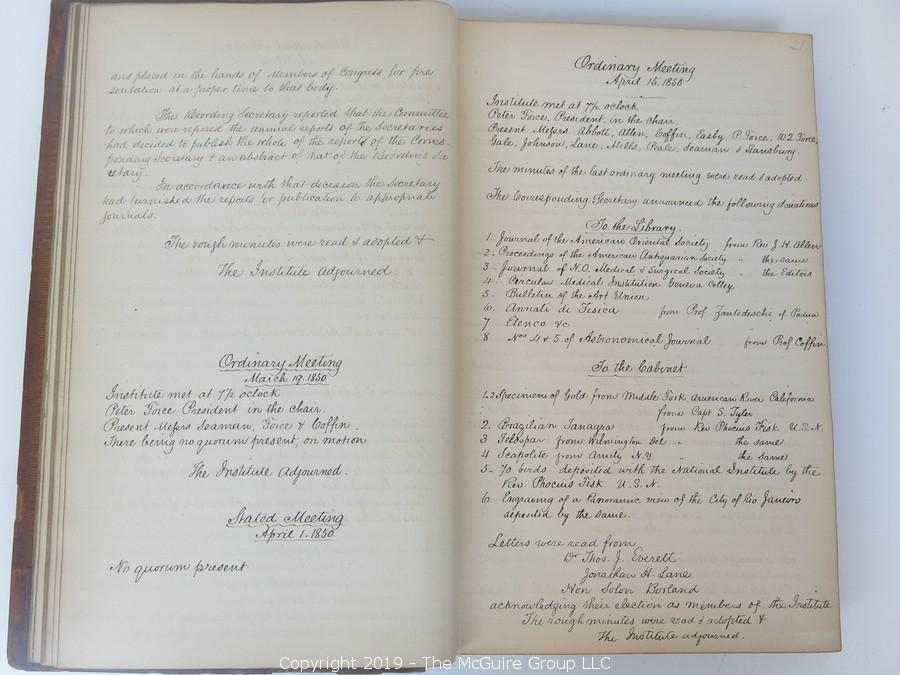 and placed in the hands of Members of Congress for pre
sentation at a proper time to that body.
The Recording Secretary reported that the Committee
to which were refered the annual reports of the Secretaries
had decided to publish the whole of the report of the Corres-
ponding Secretary & an abstract of that of the Recording Se
cretary.
In accordance with that decision the Secretary
had furnished the reports for publication to appropriate
journals.
The rough minutes were read & adopted &
The Institute adjourned.
Ordinary Meeting
March 19. 1850
Institute met at 7½ oclock
Peter Force President in the chair.
Present Messrs Seaman, Force & Coffin.
There being no quorum present, on motion
The Institute Adjourned.
Stated Meeting
April 1. 1850
No quorum present
21
Ordinary Meeting
April 15. 1850
Institute met at 7½ oclock
Peter Force, President, in the chair.
Present Messrs Abbott, Allen, Coffin, Easby, P. Force, W. Q. Force,
Gale, Johnson, Lane, Mills, Peale, Seaman & Stansbury.
The minutes of the last ordinary meeting were read & adopted.
The Corresponding Secretary announced the following donations
To the Library.
1. Journal of the American Oriental Society from Rev J. H. Allen
2. Proceedings of the American Antiquarian Society " the same
3. Journal of N.O. Medical & Surgical Society " the Editors
4. Circular Medical Institution Geneva Colleg
5. Bulletin of the Art Union
6. Annali di Fisica from Prof Zantedeschi of Padua
7 Elenco &c
8 Nos 4 & 5 of Astronomical Journal from Prof Coffin
To the Cabinet
1. 2 Specimens of Gold from Middle Fork, American River California
from Capt S. Tyler
2. Brazilian Tanagra from Rev Phocius Fisk U.S.N.
3 Feldspar from Wilmington Del " the same
4 Scapolite from Amity N.Y. " the same
5. 70 birds deposited with the National Institute by the
Rev. Phocius Fisk U.S.N.
6 Engraving of a Panoramic view of the City of Rio Janeiro
deposited by the same.
Letters were read from
Dr Thos. J. Everett
Jonathan H. Lane
Hon Solon Borland
acknowledging their election as members of the Institute
The rough minutes were read & adopted &
The Institute adjourned.
Copyright 2019 - The McGuire Group LLC